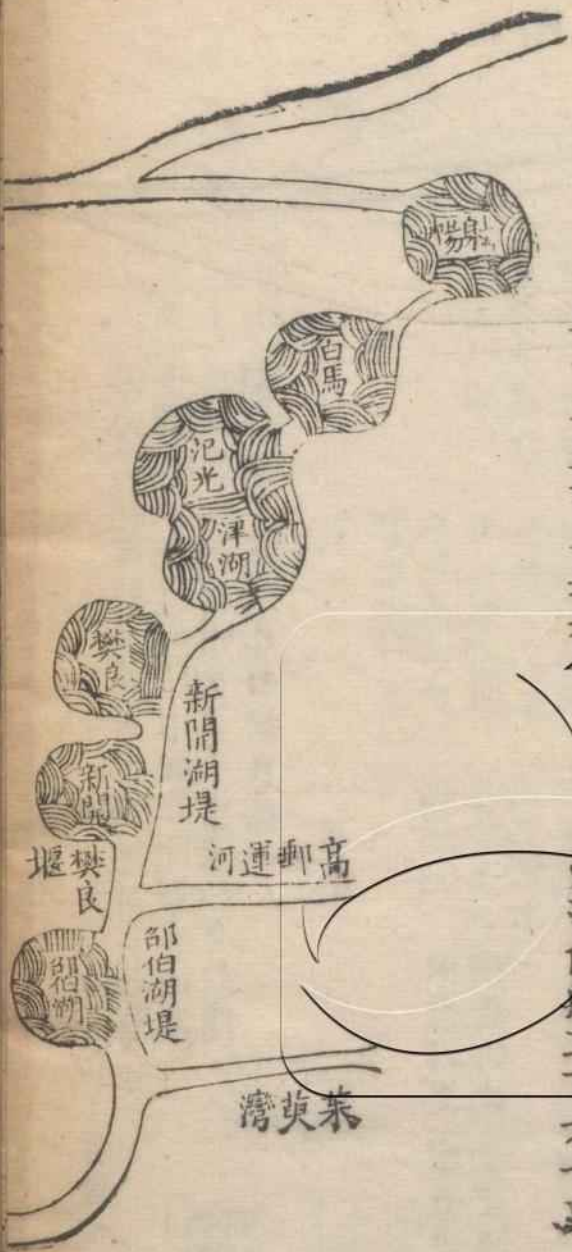 射陽
白馬
氾光
津湖
樊良
新開湖堤
新開
高郵運河
樊良堰
邵伯湖
邵伯湖堤
茱萸灣